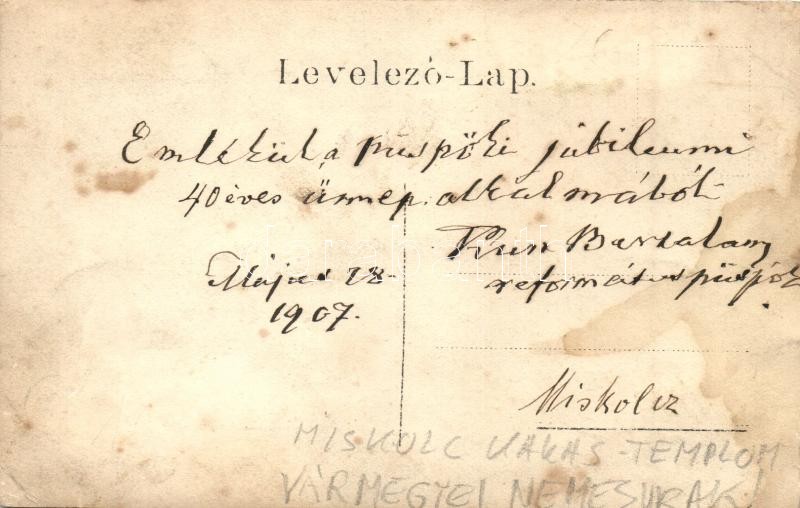 Levelező-Lap.
Emlékül a püspöki jubileumi
40 éves ünnep. alkalmából
Kun Bertalan
református püspök
Május 28
1907.
Miskolcz
MISKOLC KAKAS-TEMPLOM
VÁRMEGYEI NEMESURAK!